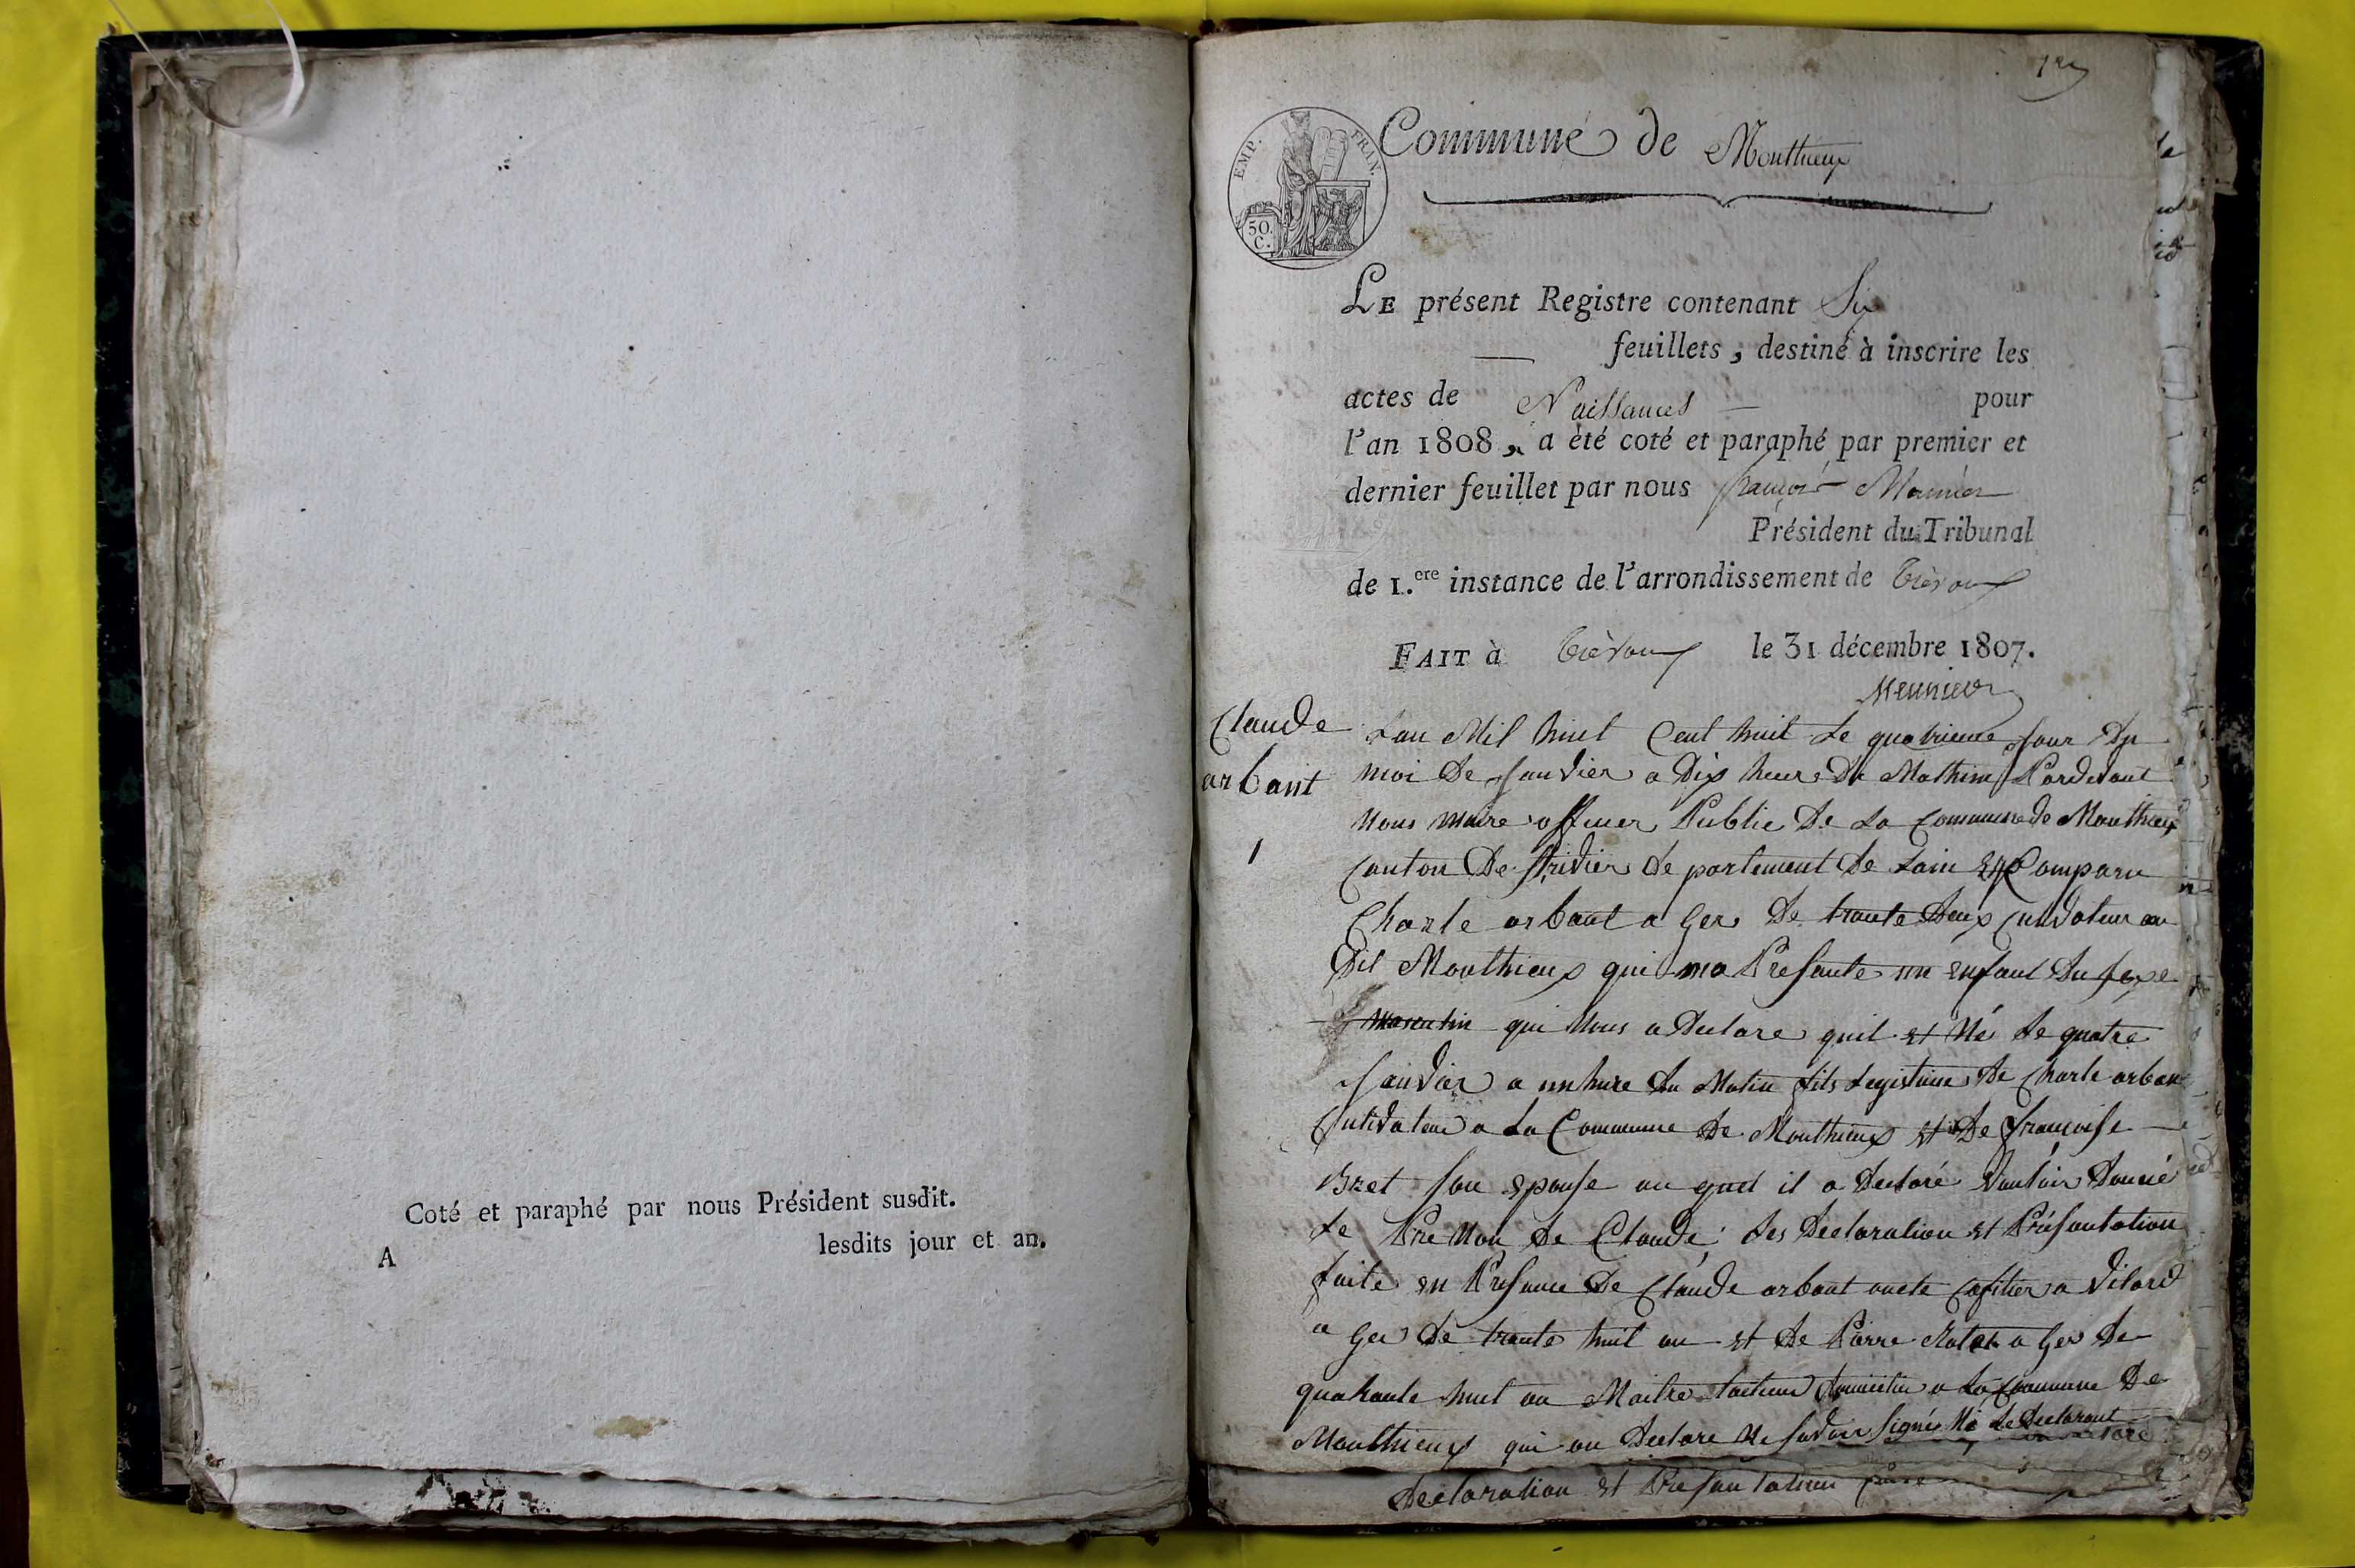 Coté et paraphé par nous Président susdit.
A lesdits jour et an.
1er
EMP. FRAN.
50. C.
Commune de Monthieux
LE présent Registre contenant Six
feuillets, destiné à inscrire les
actes de Naissances pour
l'an 1808, a été coté et paraphé par premier et
dernier feuillet par nous françois Meunier
Président du Tribunal
de 1.ere instance de l'arrondissement de Trévoux
FAIT à Trévoux le 31 décembre 1807.
Meunier
Claude
arbant
1
Lan Mil huit Cent huit Le quatrieme Jour du
moi de Janvier a dix heure du Mathin Pardevant
nous maire officier Public De La Commune de Monthieux
Canton De departement de Lain Comparu
Charle arbant a Ger de trante deux Cultivateur au
dit Monthieux qui ma Presante un enfant du sexe
masculin qui nous a Declare quil et Né Le quatre
Janvier a un hure du Matin fils Legistime de Charle arban
Cultivateur a La Commune de Monthieux et De françoise
Bret son epouse au quel il a declaré Vouloir donné
Le Pre Non de Claude; Les Declaration et Présantation
faite en Presance De Claude arbant oncle a Vilard
a Ger de trante huit an et de Pierre a Ger de
quarante huit an Maitre domicilie a La Commune De
Monthieux qui on Declare Ne savoir Signé Né Le Declarant
Declaration et Presantation